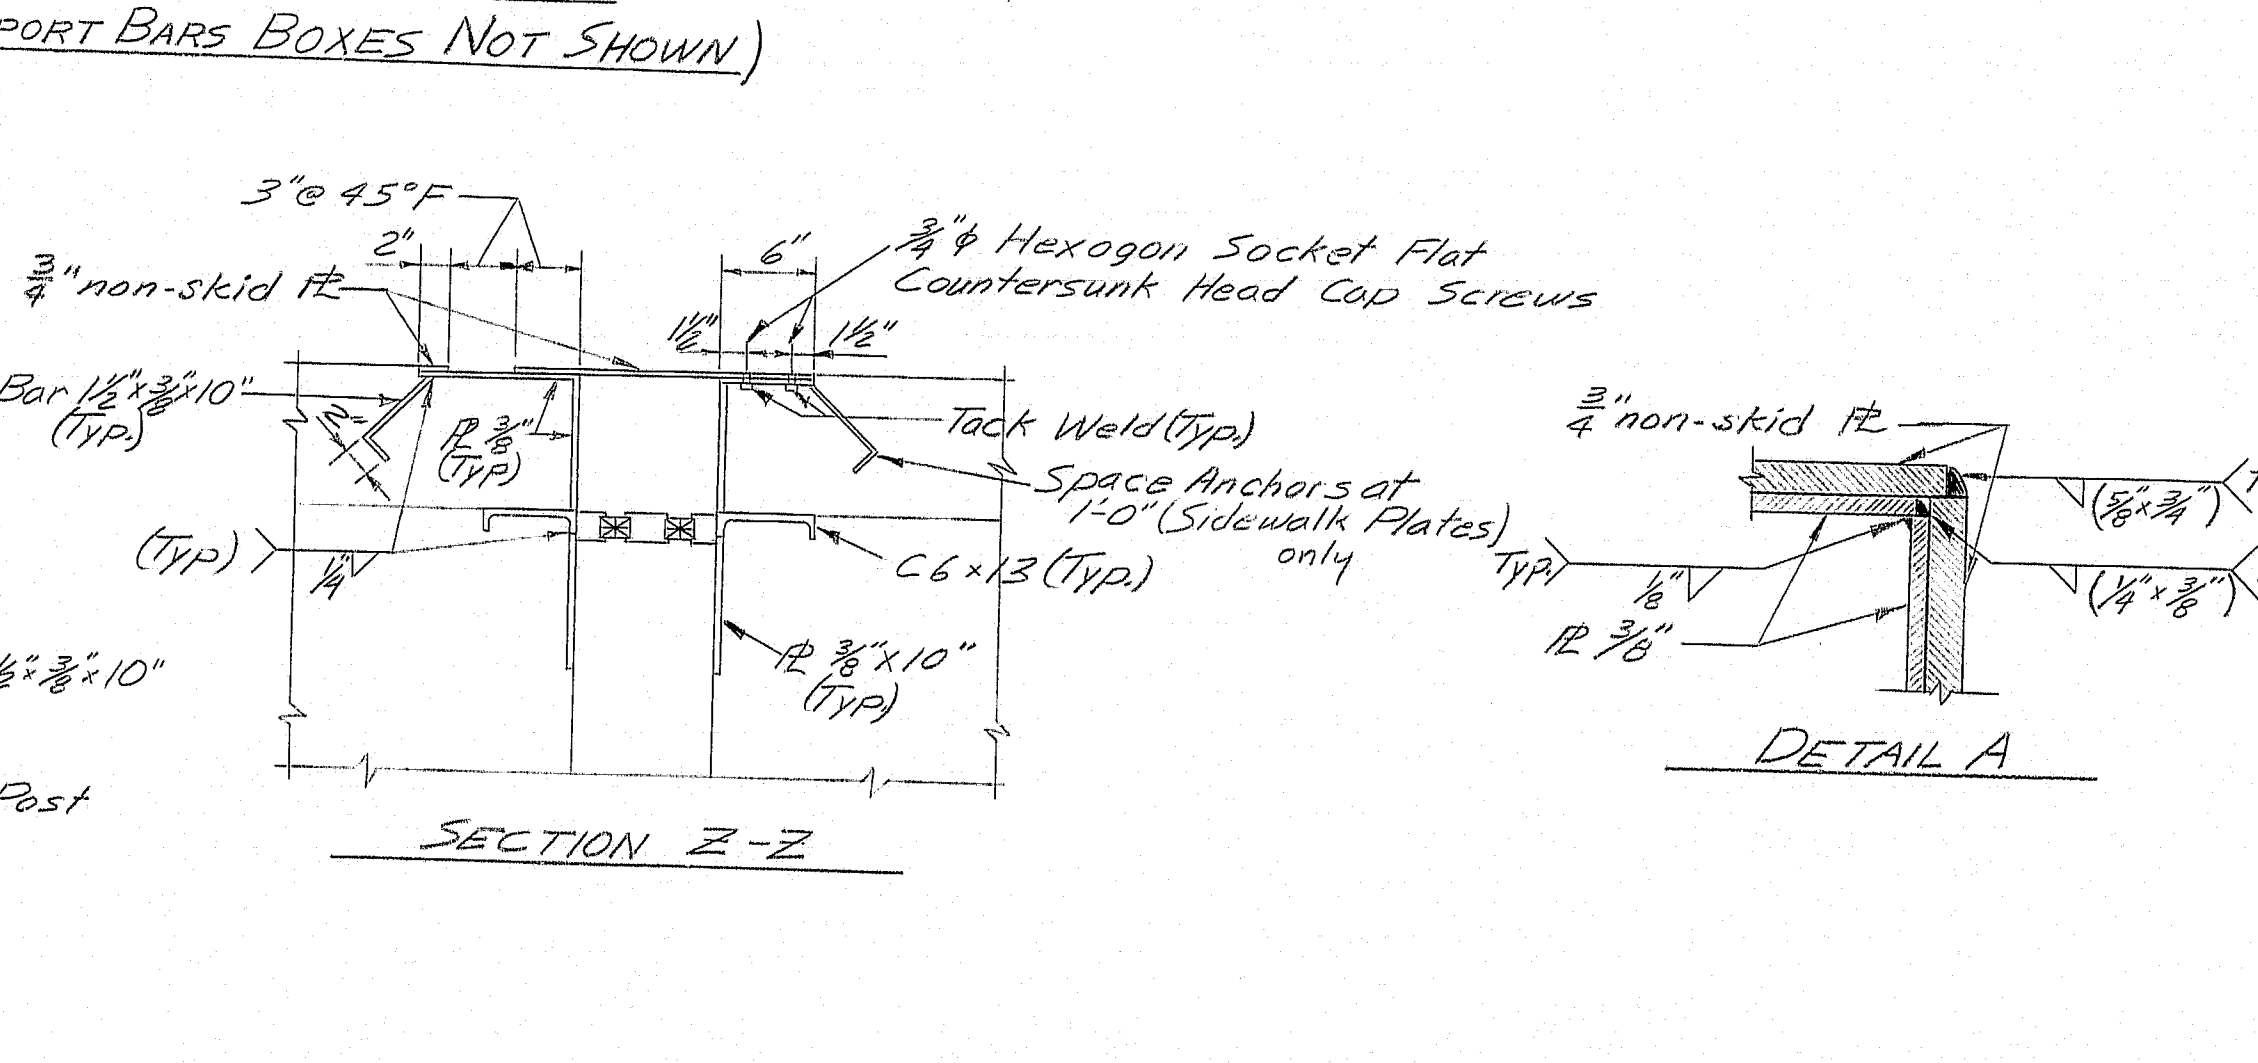 PORT BARS BOXES NOT SHOWN)
3"@ 45°F
2"
3/4" non-skid PL
6"
3/4"φ Hexogon Socket Flat
Countersunk Head Cap Screws
1 1/2"
1 1/2"
Bar 1 1/2"x3/8"x10"
(Typ.)
2"
PL 3/8"
(Typ)
Tack Weld (Typ.)
Space Anchors at
1'-0" (Sidewalk Plates)
only
(Typ)
1/4"
C6x13 (Typ.)
PL 3/8"x10"
(Typ.)
1/2"x3/8"x10"
Post
SECTION Z-Z
3/4" non-skid PL
(5/8"x3/4")
Typ.
1/8"
(1/4"x3/8")
PL 3/8"
DETAIL A